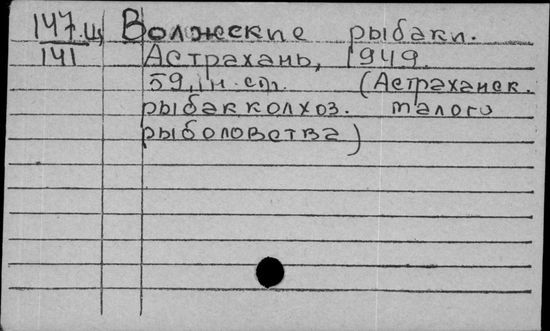 147.щ Волжские рыбаки.
141 Астрахань, 1949.
59, 1н.ст. (Астраханск.
рыбакколхоз. малого
рыболовства)